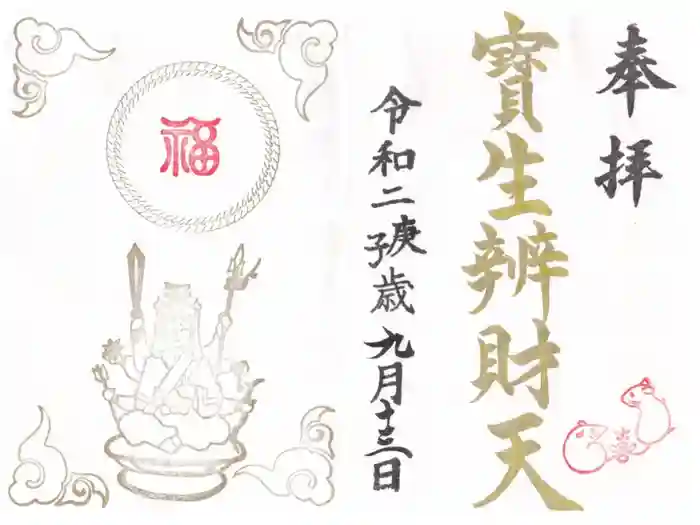 奉拝
寶生辨財天
令和二庚子歳九月十三日
福
喜